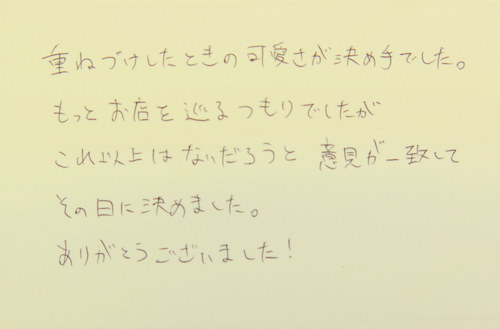 重ねづけしたときの可愛さが決め手でした。
もっとお店を巡るつもりでしたが
これ以上はないだろうと意見が一致して
その日に決めました。
ありがとうございました！